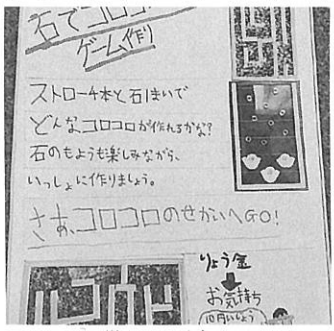 石でコロコロ
ゲーム作り
ストロー4本と石1まいで
どんなコロコロが作れるかな?
石のもようも楽しみながら、
いっしょに作りましょう。
さあ、コロコロのせかいへGO!
りょう金
お気持ち
(10円いじょう)